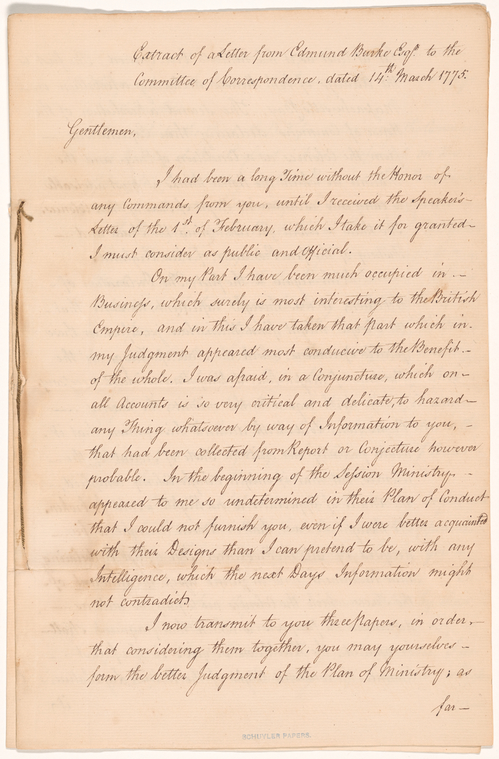 Extract of a Letter from Edmund Burke Esqr. to the
Committee of Correspondence. dated 14th. March 1775.
Gentlemen,
I had been a long Time without the Honor of
any Commands from you, until I received the Speaker's
Letter of the 1st. of February, which I take it for granted
I must consider as public and Official.
On my Part I have been much occupied in
Business, which surely is most interesting to the British
Empire, and in this I have taken that part which in
my Judgment appeared most conducive to the Benefit
of the whole. I was afraid, in a Conjuncture, which on
all Accounts is so very critical and delicate, to hazard
any Thing whatsoever by way of Information to you,
that had been collected from Report or Conjecture however
probable. In the beginning of the Session Ministry
appeared to me so undetermined in their Plan of Conduct
that I could not furnish you, even if I were better acquainted
with their Designs than I can pretend to be, with any
Intelligence, which the next Days Information might
not contradict.
I now transmit to you three Papers, in order,
that considering them together, you may yourselves
form the better Judgment of the Plan of Ministry; as
far
SCHUYLER PAPERS.